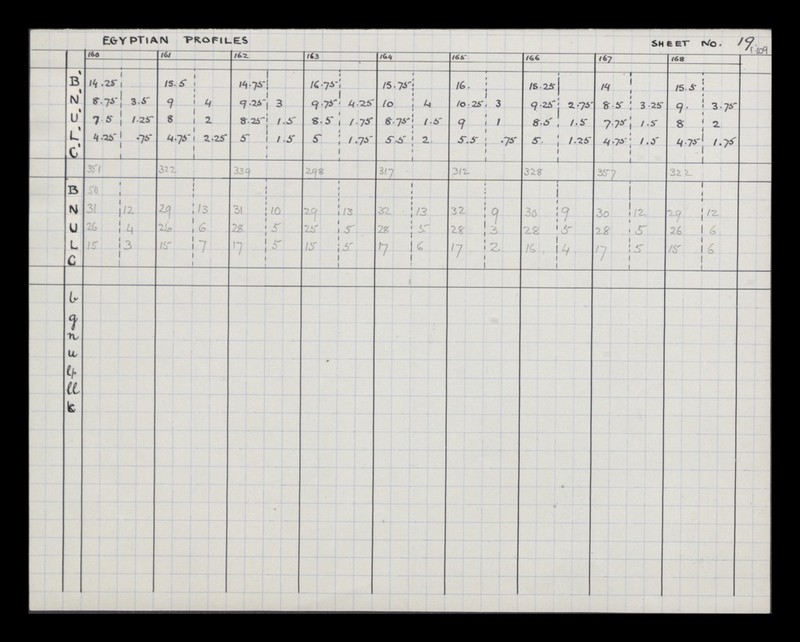 EGYPTIAN PROFILES SHEET No. 19
160 161 162 163 164 165 166 167 168
B' 14.25 15.5 14.75 16.75 15.75 16. 15.25 14 15.5
N' 8.75 3.5 9 4 9.25 3 9.75 4.25 10 4 10.25 3 9.25 2.75 8.5 3.25 9. 3.75
U' 7.5 1.25 8 2 8.25 1.5 8.5 1.75 8.75 1.5 9 1 8.5 1.5 7.75 1.5 8 2
L' 4.25 .75 4.75 2.25 5 1.5 5 1.75 5.5 2. 5.5 .75 5. 1.25 4.75 1.5 4.75 1.75
C'
351 322 339 298 317 312 328 357 322
B 50
N 31 12 29 13 31 10 29 13 32 13 32 9 30 9 30 12 29 12
U 26 4 26 6 28 5 25 5 28 5 28 3 28 5 28 5 26 6
L 15 3 15 7 17 5 15 5 17 6 17 2 16 4 17 5 15 6
C
b
g
n
u
ll
k